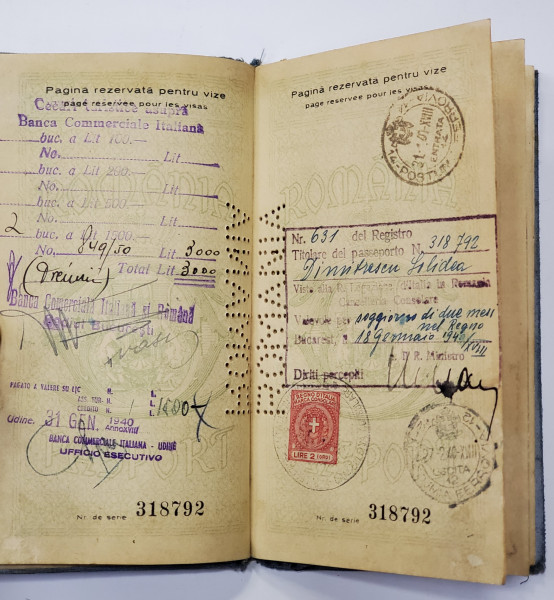 Pagină rezervată pentru vize
page réservée pour les visas
Cecuri turistice asupra
Banca Commerciale Italiană
buc. a Lit 100.—
No. Lit
buc. a Lit 200.—
No. Lit
buc. a Lit 500.—
No. Lit
2 buc. a Lit 1500.—
No. 849/50 Lit 3000
Total Lit 3000
Banca Comercială Italiană și Română
București
PAGATO A VALERE SU L/C N. L.
ASS. TUR. N. L.
CREDITO N. 1 L.
Udine, 31 GEN. 1940
Anno XVIII
BANCA COMMERCIALE ITALIANA - UDINE
UFFICIO ESECUTIVO
Nr. de serie 318792
ROMÂNIA
Pagină rezervată pentru vize
page réservée pour les visas
FERROVIA
ENTRATA
POSTUMIA
ROMÂNIA
Nr. 631 del Registro
Titolare del passaporto N. 318792
Dimitrescu
Visto alla R. Legazione d'Italia in Romania
Cancelleria Consolare
Valevole per soggiorno di due mesi
nel Regno
Bucarest, 18 Gennaio 1940/XVIII
p. Il R. Ministro
Diritti percepiti
REGNO D'ITALIA
LIRE 2 (ORO)
USCITA
12
FERROVIA
Nr. de serie 318792